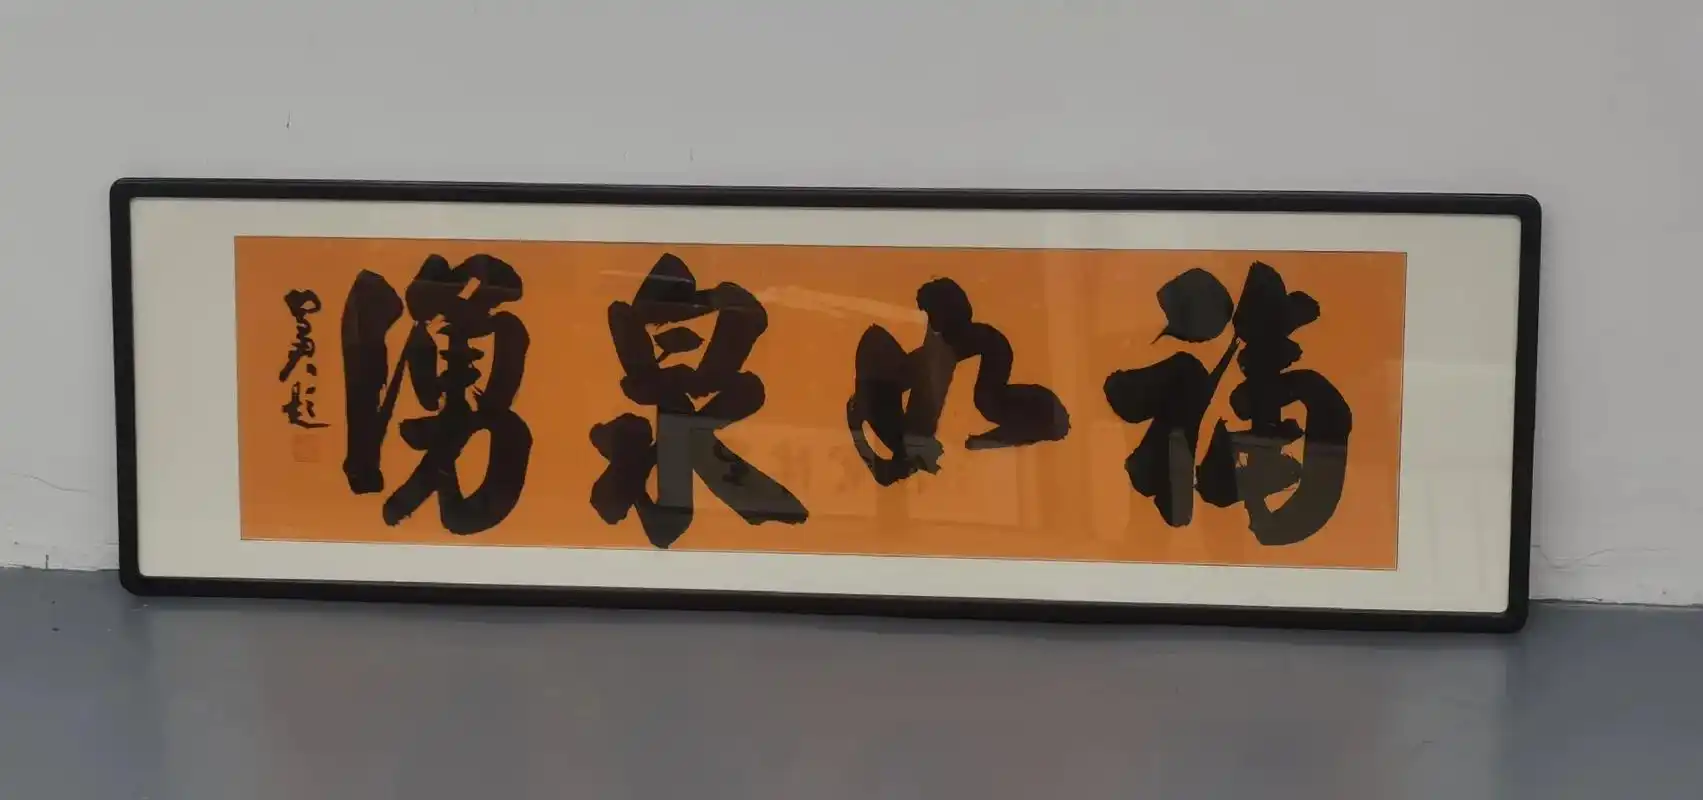 福如泉湧